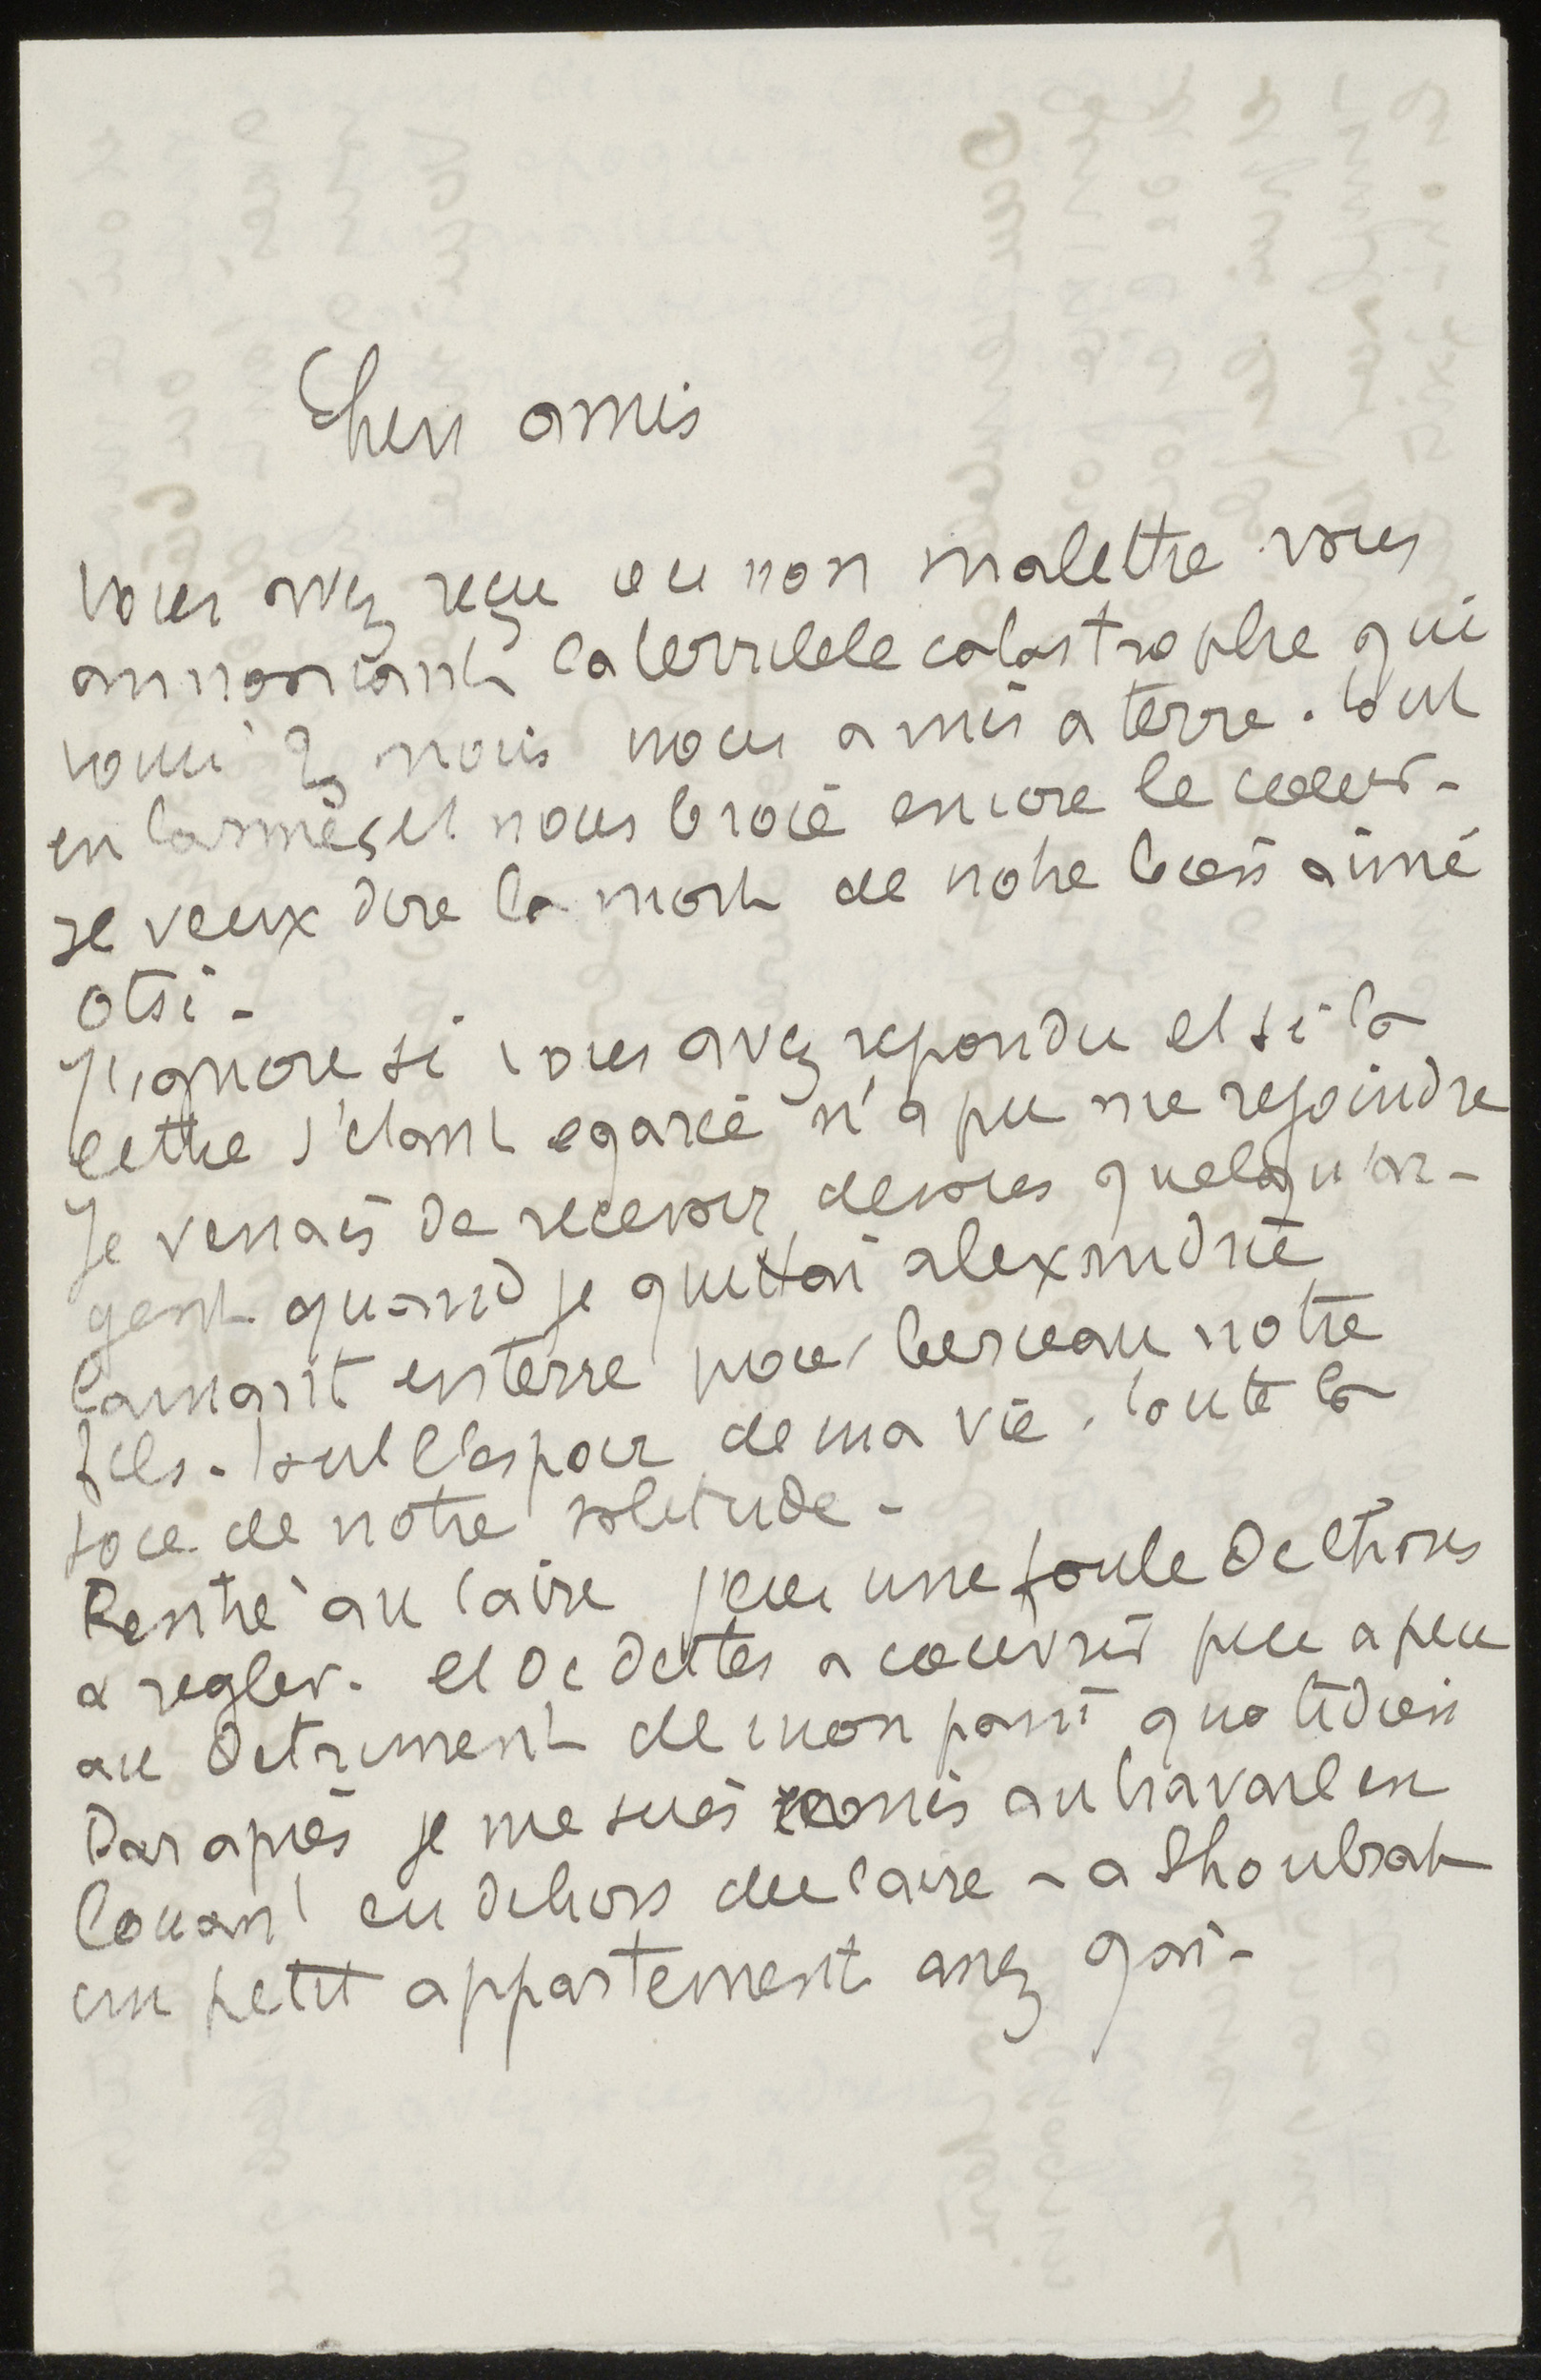 Chers amis
Vous avez reçu ou non ma lettre vous
annonçant la terrible catastrophe qui
nous nous a mis a terre. Tout
en larmes, et nous broie encore le coeur -
je veux dire la mort de notre bien aimé
Otsi -
J'ignore si vous avez repondu et si la
lettre s'étant egarée n'a pu me rejoindre
Je venais de recevoir de vous quelqu'ar-
gent quand je quittai alexandrie
laissant en terre pour berceau notre
fils - tout l'espoir de ma vie. toute la
joie de notre solitude -
Rentré au Caire j'eus une foule de choses
a regler. et de dettes a couvrir peu a peu
au detriment de mon pain quotidien
Par après je me suis remis au travail en
louant en dehors du Caire - a Shoubrah
un petit appartement assez gai -